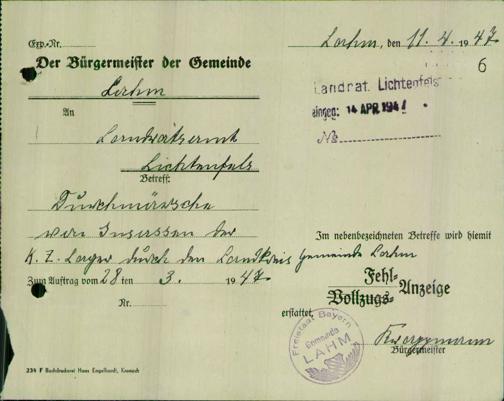 Exp.-Nr.
Der Bürgermeister der Gemeinde
Lahm
An
Landratsamt
Lichtenfels
Betreff:
Durchmärsche
von Insassen der
K. Z. Lager durch den Landkreis
Zum Auftrag vom 28 ten 3. 1947
Nr.
234 F Buchdruckerei Hans Engelhardt, Kronach
Lahm, den 11. 4. 1947
6
Landrat Lichtenfels
eingeg: 14 APR. 1947
No
Im nebenbezeichneten Betreffe wird hiemit
Gemeinde Lahm
Fehl-
Vollzugs-Anzeige
erstattet.
Freistaat Bayern
Gemeinde
LAHM
Bürgermeister